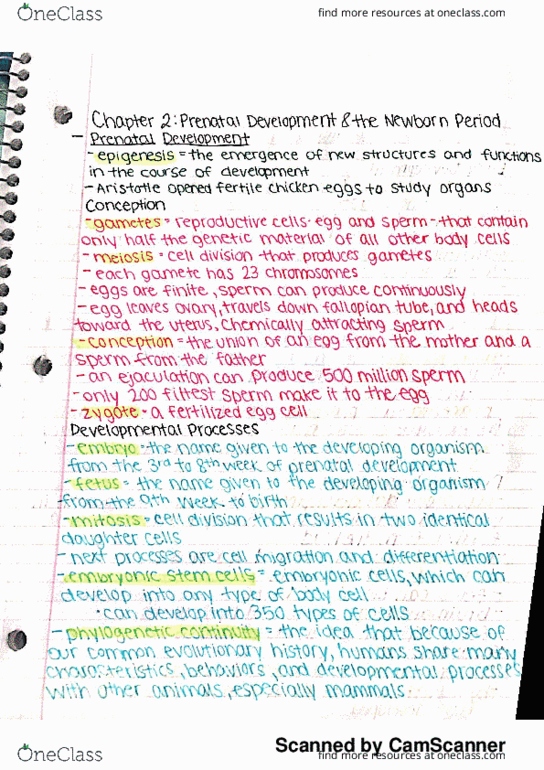 OneClass
find more resources at oneclass.com
Chapter 2: Prenatal Development & the Newborn Period
- Prenatal Development
- epigenesis = the emergence of new structures and functions
in the course of development
- Aristotle opened fertile chicken eggs to study organs
Conception
- gametes = reproductive cells- egg and sperm - that contain
only half the genetic material of all other body cells
- meiosis = cell division that produces gametes
- each gamete has 23 chromosomes
- eggs are finite, sperm can produce continuously
- egg leaves ovary, travels down fallopian tube, and heads
toward the uterus, chemically attracting sperm
- conception = the union of an egg from the mother and a
sperm from the father
- an ejaculation can produce 500 million sperm
- only 200 fittest sperm make it to the egg
- zygote - a fertilized egg cell
Developmental Processes
- embryo - the name given to the developing organism
from the 3rd to 8th week of prenatal development
- fetus = the name given to the developing organism
from the 9th week to birth
- mitosis = cell division that results in two identical
daughter cells
- next processes are cell migration and differentiation
- embryonic stem cells = embryonic cells, which can
develop into any type of body cell
• can develop into 350 types of cells
- phylogenetic continuity = the idea that because of
our common evolutionary history, humans share many
characteristics, behaviors, and developmental processes
with other animals, especially mammals
Scanned by CamScanner
OneClass
find more resources at oneclass.com